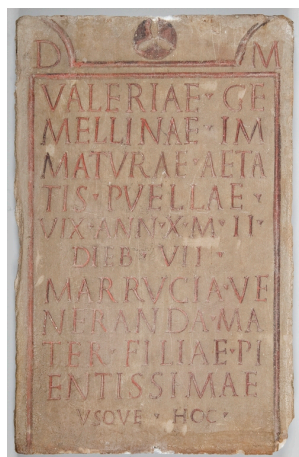 D M
VALERIAE GE
MELLINAE IM
MATVRAE AETA
TIS PVELLAE
VIX ANN X M II
DIEB VII
MARRVCIA VE
NERANDA MA
TER FILIAE PI
ENTISSIMAE
VSQVE HOC